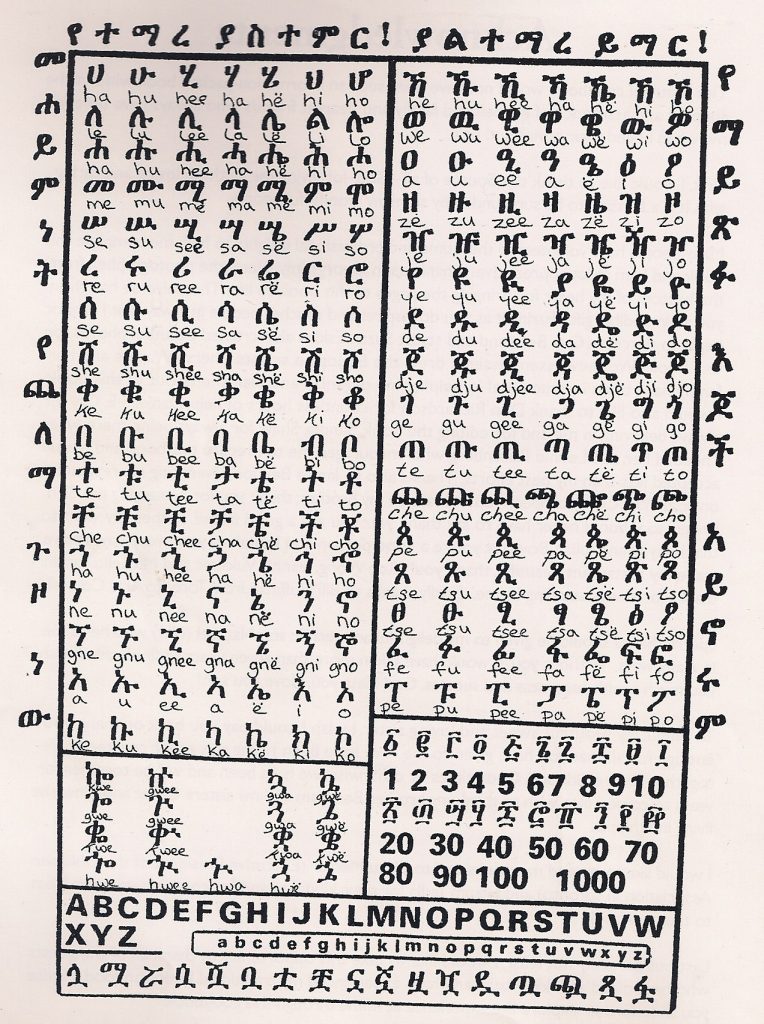 የተማረ ያስተምር! ያልተማረ ይማር!
መሐይምነት የጨለማ ጉዞ ነው
ሀ ሁ ሂ ሃ ሄ ህ ሆ
ha hu hee ha hë hi ho
ለ ሉ ሊ ላ ሌ ል ሎ
le lu lee la lë li lo
ሐ ሑ ሒ ሓ ሔ ሕ ሖ
ha hu hee ha hë hi ho
መ ሙ ሚ ማ ሜ ም ሞ
me mu me ma më mi mo
ሠ ሡ ሢ ሣ ሤ ሥ ሦ
se su see sa së si so
ረ ሩ ሪ ራ ሬ ር ሮ
re ru ree ra rë ri ro
ሰ ሱ ሲ ሳ ሴ ስ ሶ
se su see sa së si so
ሸ ሹ ሺ ሻ ሼ ሽ ሾ
she shu shee sha shë shi sho
ቀ ቁ ቂ ቃ ቄ ቅ ቆ
ke ku kee ka kë ki ko
በ ቡ ቢ ባ ቤ ብ ቦ
be bu bee ba bë bi bo
ተ ቱ ቲ ታ ቴ ት ቶ
te tu tee ta të ti to
ቸ ቹ ቺ ቻ ቼ ች ቾ
che chu chee cha chë chi cho
ኀ ኁ ኂ ኃ ኄ ኅ ኆ
ha hu hee ha hë hi ho
ነ ኑ ኒ ና ኔ ን ኖ
ne nu nee na në ni no
ኘ ኙ ኚ ኛ ኜ ኝ ኞ
gne gnu gnee gna gnë gni gno
አ ኡ ኢ ኣ ኤ እ ኦ
a u ee a ë i o
ከ ኩ ኪ ካ ኬ ክ ኮ
ke ku kee ka kë ki ko
ኰ ኲ ኳ ኴ
kwe gwee gwa gwë
ጐ ጒ ጓ ጔ
gwe gwee gwa gwë
ቈ ቊ ቋ ቌ
kwe kwee kwa kwë
hwe hwee hwa hwë
ኸ ኹ ኺ ኻ ኼ ኽ ኾ
he hu hee ha hë hi ho
ወ ዉ ዊ ዋ ዌ ው ዎ
we wu wee wa wë wi wo
ዐ ዑ ዒ ዓ ዔ ዕ ዖ
a u ee a ë i o
ዘ ዙ ዚ ዛ ዜ ዝ ዞ
ze zu zee za zë zi zo
ዠ ዡ ዢ ዣ ዤ ዥ ዦ
je ju jee ja jë ji jo
የ ዩ ዪ ያ ዬ ይ ዮ
ye yu yee ya yë yi yo
ደ ዱ ዲ ዳ ዴ ድ ዶ
de du dee da dë di do
ጀ ጁ ጂ ጃ ጄ ጅ ጆ
dje dju djee dja djë dji djo
ገ ጉ ጊ ጋ ጌ ግ ጎ
ge gu gee ga gë gi go
ጠ ጡ ጢ ጣ ጤ ጥ ጦ
te tu tee ta të ti to
ጨ ጩ ጪ ጫ ጬ ጭ ጮ
che chu chee cha chë chi cho
ጰ ጱ ጲ ጳ ጴ ጵ ጶ
pe pu pee pa pë pi po
ጸ ጹ ጺ ጻ ጼ ጽ ጾ
tse tsu tsee tsa tsë tsi tso
ፀ ፁ ፂ ፃ ፄ ፅ ፆ
tse tsu tsee tsa tsë tsi tso
ፈ ፉ ፊ ፋ ፌ ፍ ፎ
fe fu fee fa fë fi fo
ፐ ፑ ፒ ፓ ፔ ፕ ፖ
pe pu pee pa pë pi po
፩ ፪ ፫ ፬ ፭ ፮ ፯ ፰ ፱ ፲
1 2 3 4 5 6 7 8 9 10
፳ ፴ ፵ ፶ ፷ ፸ ፹ ፺ ፻ ፲፻
20 30 40 50 60 70
80 90 100 1000
የማይጽፉ እጆች አይኖሩም
ABCDEFGHIJKLMNOPQRSTUVW
XYZ
abcdefghijklmnopqrstuvwxyz
ሏ ሟ ሯ ሷ ሿ ቧ ቷ ቿ ኗ ኟ ዟ ዧ ዷ ጧ ጯ ጿ ፏ